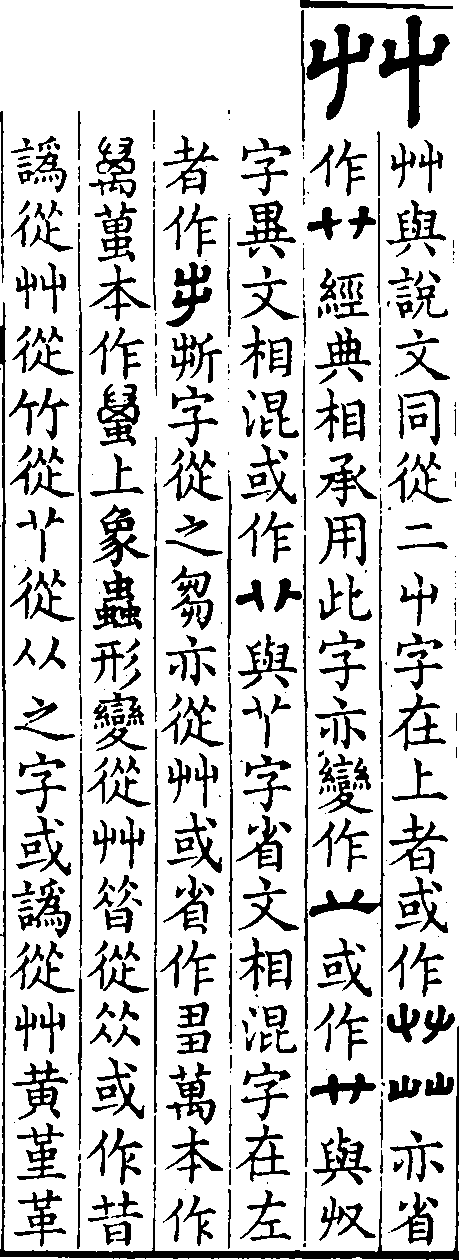 艸
艸與說文同從二屮字在上者或作艸䒑亦省
作艹經典相承用此字亦變作䒑或作廾與収
字異文相混或作䒑與丫字省文相混字在左
者作屮斯字從之芻亦從艸或省作萬本作
萬本作上象蟲形變從艸朁從或作昔
譌從艸從竹從丫從从之字或譌從艸黃堇革